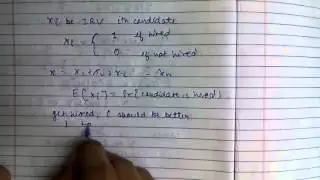 xi be IRV ith candidate
xi = { 1 if hired
0 if not hired
E[xi] = Pr{candidate is hired}
get hired, i should be better
1 to